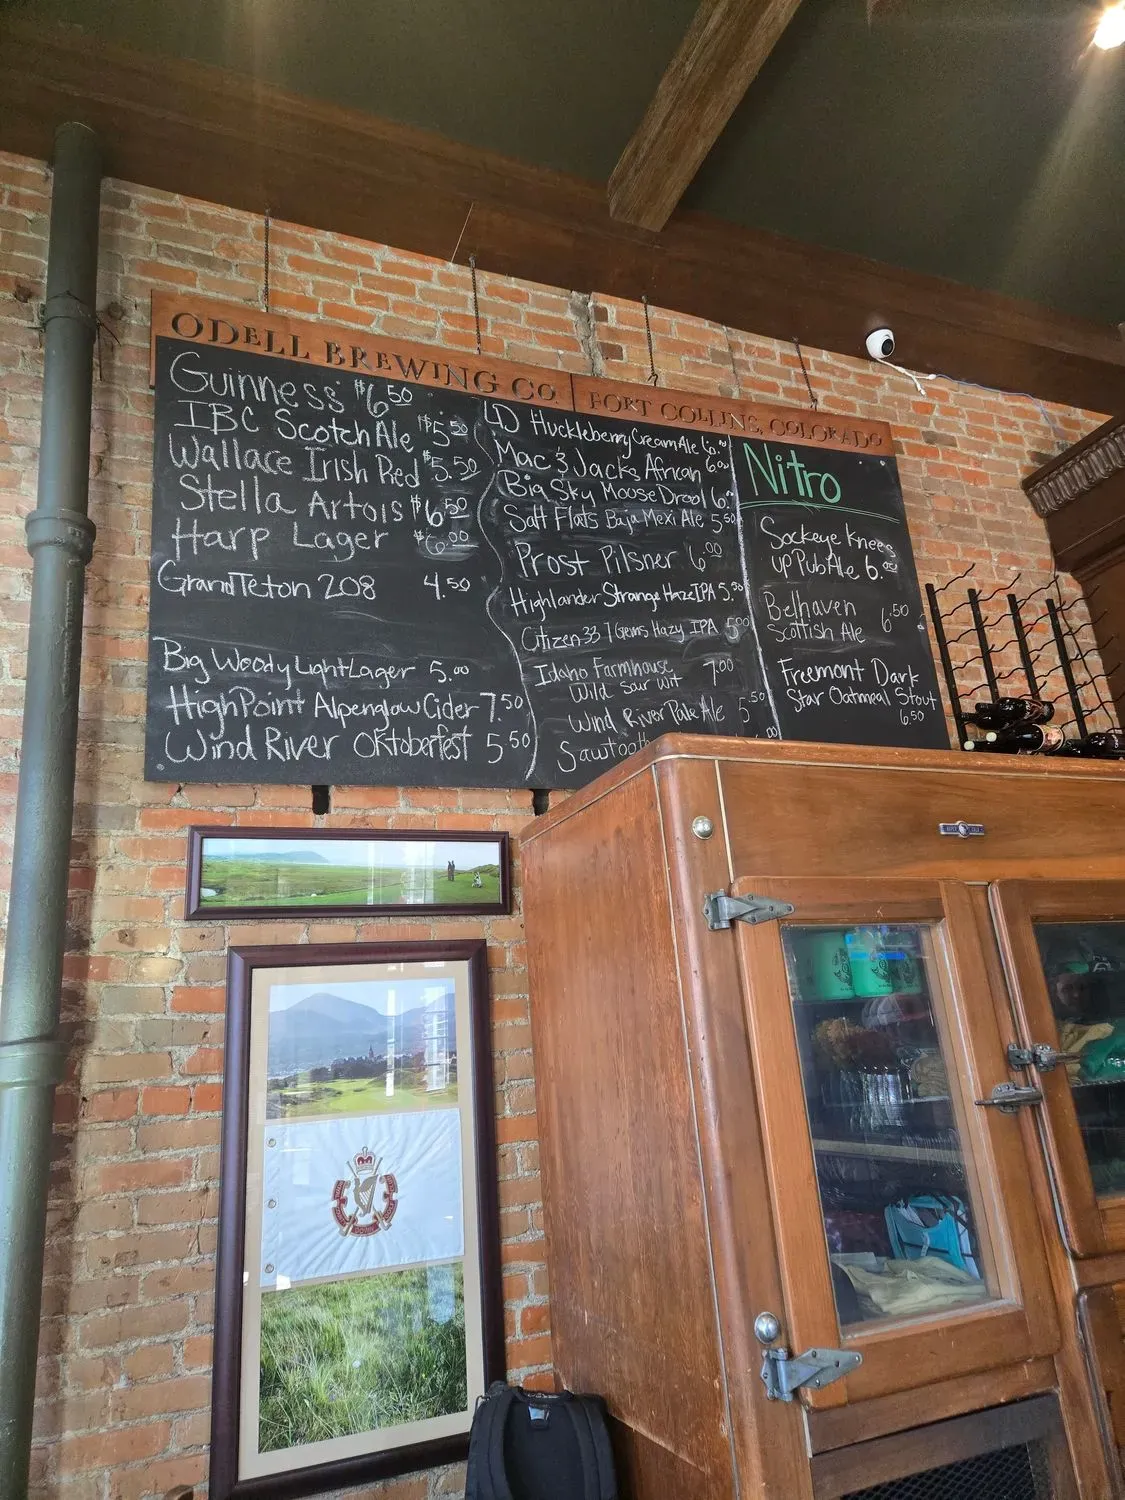 ODELL BREWING CO. FORT COLLINS, COLORADO
Guinness $6.50
IBC Scotch Ale $5.50
Wallace Irish Red $5.50
Stella Artois $6.50
Harp Lager $6.00
Grand Teton 208 4.50
Big Woody Light Lager 5.00
High Point Alpenglow Cider 7.50
Wind River Oktoberfest 5.50
LD Huckleberry Cream Ale 6.00
Mac & Jacks African 6.00
Big Sky Moose Drool 6.00
Salt Flats Baja Mexi Ale 5.50
Prost Pilsner 6.00
Highlander Strange Haze IPA 5.50
Citizen 33 7 Gems Hazy IPA 5.00
Idaho Farmhouse 7.00
Wild Sour Wit
Wind River Pale Ale 5.50
Sawtooth
Nitro
Sockeye Knees
up Pub Ale 6.00
Belhaven 6.50
Scottish Ale
Freemont Dark
Star Oatmeal Stout
6.50